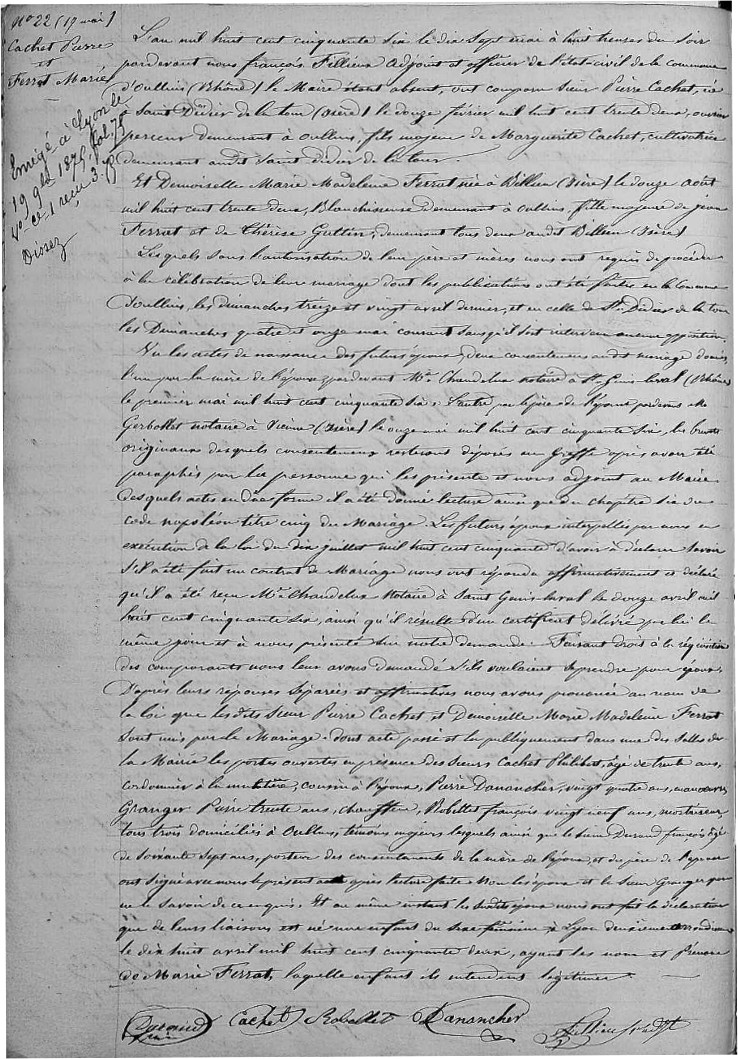 N° 22 (17 mai)
Cachet Pierre
et
Ferrat Marie
Enrégé à Lyon le
19 9bre 1875, fol. 78
v° ce 1 reçu 3.
Dissez
L'an mil huit cent cinquante six le dix sept mai à huit heures du soir
pardevant nous françois Fillieux adjoint et officier de l'état-civil de la commune
d'Oullins (Rhône) le Maire absent, ont comparu Sieur Pierre Cachet, né
à Saint Didier de la tour (isère) le douze février mil huit cent trente deux, ouvrier
perceur demeurant à oullins, fils majeur de Marguerite Cachet, cultivatrice
demeurant audit Saint didier de la tour.
Et Demoiselle Marie Madeleine Ferrat née à Billieu (isère) le douze août
mil huit cent trente deux, Blanchisseuse demeurant à oullins, fille majeure de jean
Ferrat et de Thérèse Guttin, demeurant tous deux audit Billieu (isère)
Lesquels sous l'autorisation de leur père et mères nous ont requis de procéder
à la célébration de leur mariage dont les publications ont été faites en la Commune
d'oullins, les dimanches treize et vingt avril dernier, et en celle de St. Didier de la tour
les Dimanches quatre et onze mai courant sans qu'il soit intervenu aucune opposition.
Vu les actes de naissance des futurs époux, deux consentements audit mariage donnés
l'un par la mère de l'époux, pardevant Me. Chandelux notaire à St. Genis laval (Rhône)
le premier mai mil huit cent cinquante six; L'autre par le père de l'épouse pardevant Me
Gerbollet notaire à Vienne (isère) le onze mai mil huit cent cinquante six, les brevets
originaux desquels consentements resteront déposés au Greffe après avoir été
paraphés par la personne qui les présente et nous adjoint au Maire
desquels actes en due forme il a été donné lecture ainsi que du chapitre six du
code napoléon titre cinq du Mariage. Les futurs époux interpellés par nous en
exécution de la loi du dix juillet mil huit cent cinquante d'avoir à déclarer savoir
S'il a été fait un contrat de Mariage nous ont répondu affirmativement et déclaré
qu'il a été reçu Me. Chandelux Notaire à Saint Genis laval le douze avril mil
huit cent cinquante six, ainsi qu'il résulte d'un certificat délivré par lui le
même jour et à nous présenté sur notre demande. Faisant droit à la réquisition
des comparants nous leur avons demandé S'ils voulaient se prendre pour époux.
D'après leurs réponses séparées et affirmatives nous avons prononcé au nom de
la loi que lesdits Sieur Pierre Cachet, et Demoiselle Marie Madeleine Ferrat
sont unis par le Mariage. dont acte passé et lu publiquement dans une des Salles de
la Mairie les portes ouvertes en présence des Sieurs Cachet Philibert, âgé de trente ans,
cordonnier à la mulatière, cousin à l'époux, Pierre Danancher, vingt quatre ans, manoeuvre,
Granger Pierre trente ans, chauffeur, Robellet françois vingt neuf ans, mortaiseur,
tous trois domiciliés à Oullins, témoins majeurs lesquels ainsi que le Sieur Durand françois âgé
de soixante sept ans, porteur des consentements de la mère de l'époux, et du père de l'épouse
ont signé avec nous le présent acte après lecture faite Non les époux et le Sieur Granger pour
ne le savoir de ce enquis. Et au même instant lesdits époux nous ont fait la déclaration
que de leurs liaisons est né une enfant du sexe féminin à Lyon deuxième arrondissement
le dix huit avril mil huit cent cinquante deux, ayant les nom et Prénom
de Marie Ferrat, laquelle enfant ils entendent légitimer.
Durand Cachet Robellet Danancher Fillieux adjt